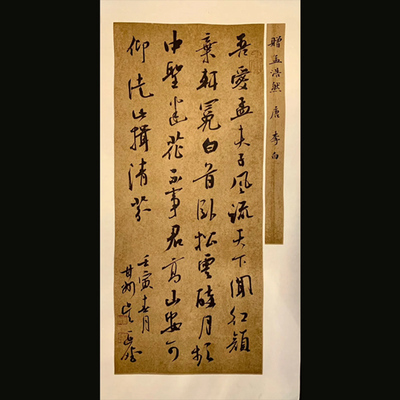 贈孟浩然 唐 李白
吾愛孟夫子風流天下聞紅顏
棄軒冕白首臥松雲醉月頻
中聖迷花不事君高山安可
仰徒此揖清芬
壬寅春月
甘州